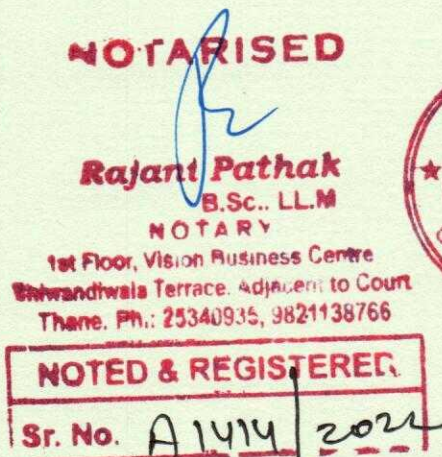 NOTARISED
Rajani Pathak
B.Sc.. LL.M
NOTARY
1st Floor, Vision Business Centre
Bhiwandiwala Terrace. Adjacent to Court
Thane. Ph.: 25340935, 9821138766
NOTED & REGISTERED
Sr. No. A1414/2022